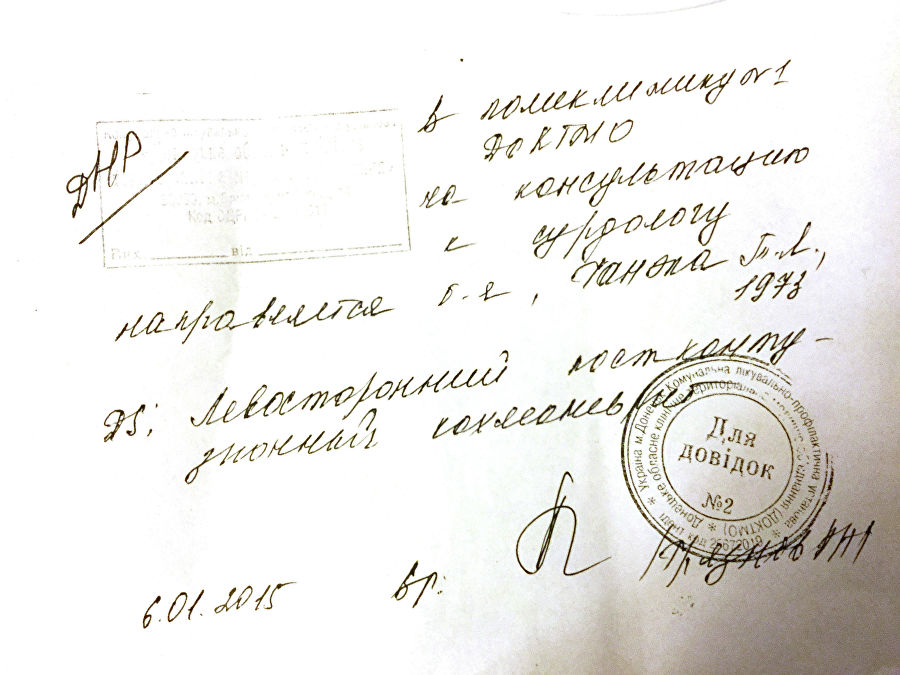 ДНР
Вих. від
в поликлинику №1
ДОКТМО
на консультацию
к сурдологу
направляется б-я, Ханжа Т.Л.,
1973
DS: Левосторонний постконту-
зионный кохлеоневрит
Україна м.Донецьк Комунальна лікувально-профілактична установа
Донецьке обласне клінічне територіальне медичне об'єднання (ДОКТМО)
код 25672019
Для
довідок
№2
6.01.2015 Вр: